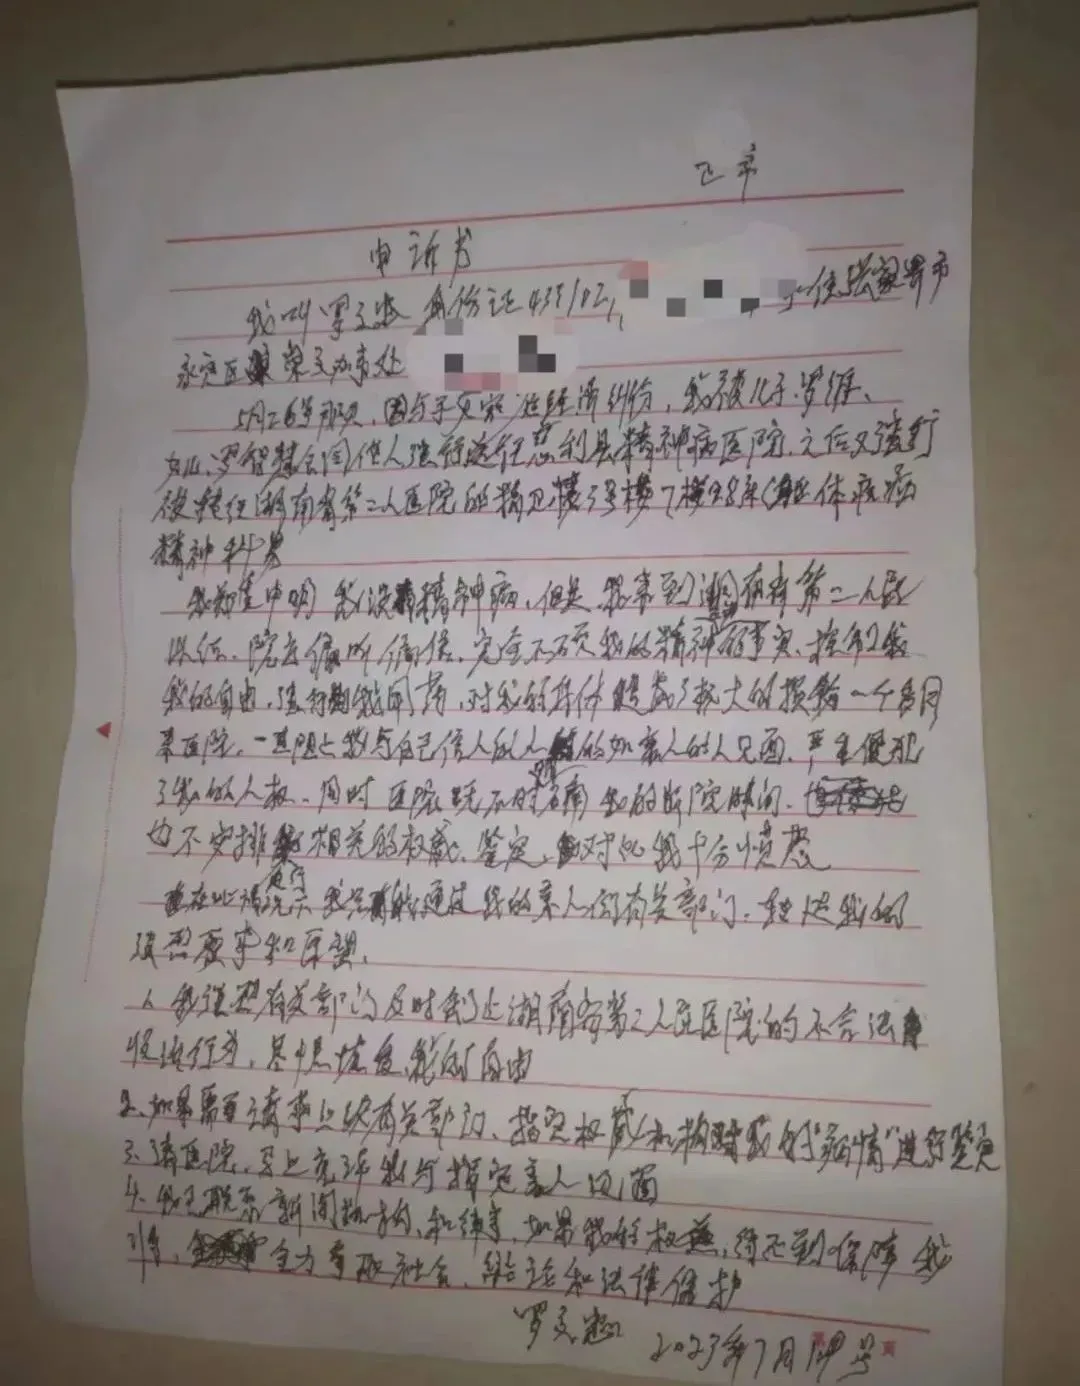 申诉书
我叫罗文 身份证433102, 住张家界市
永定区 崇文办事处
5月26号那天,因与子女家庭经济纠纷,我被儿子罗维、
女儿罗智慧会同他人强行送往慈利县精神病医院,之后又强行
被转往湖南省第二人医院的 楼3号楼7楼98床 体
精神科男
我郑重申明 我没有精神病,但是我来到湖南省第二人民
医院,院方偏听偏信,完全不顾我的精神 事实,控制了我
我的自由,强行 我用药,对我的身体造成了极大的损 一个多月
来医院,一直阻止我与自己信人的 的如亲人的人见面,严重侵犯
了我的人权。同时 医院既不 我的 院时间,
也不安排 相关的权威、鉴定,对此我十分愤怒
在此情况下 我只有能通过我的亲人向有关部门、转达我的
强烈 和愿望。
1、我强烈 有关部门及时制止湖南省第二人民医院的不合法
收治行为,尽快恢复我的自由
2、如果需要请求上级有关部门、指定权威机构对我的“病情”进行鉴定
3、请医院,马上允许我与指定亲人见面
4、我已联系新闻 ,和律 ,如果我的权益,得不到保障 我
将, 全力争取社会, 和法律保护
罗文 2023年7月 号